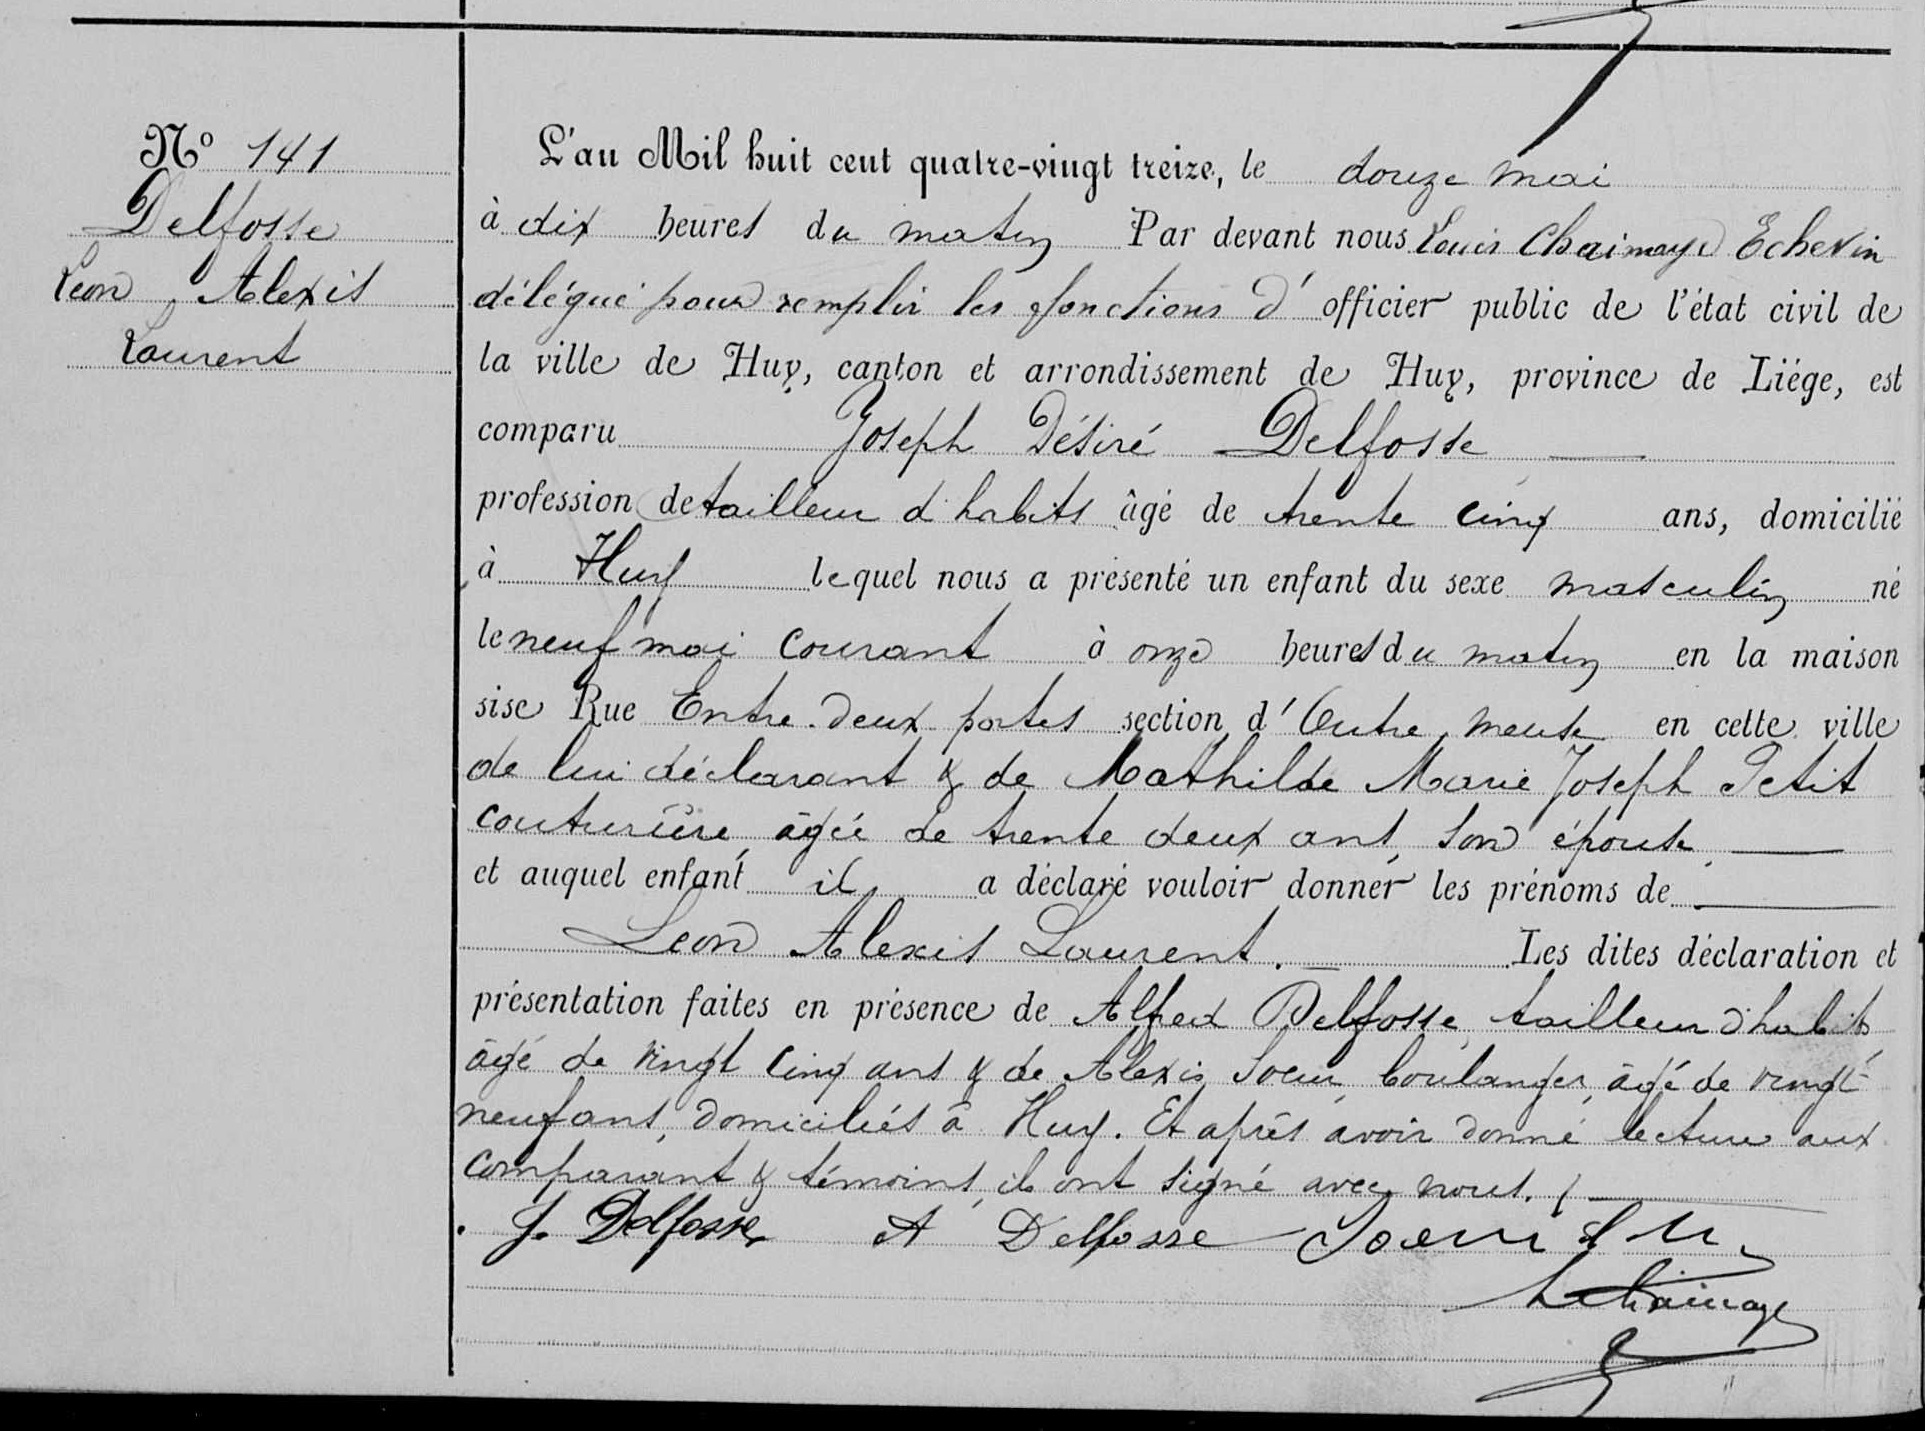 N° 141
Delfosse
Leon Alexis
Laurent
L'an Mil huit cent quatre-vingt treize, le douze mai
à dix heures du matin Par devant nous Louis Chainaye Echevin
délégué pour remplir les fonctions d' officier public de l'état civil de
la ville de Huy, canton et arrondissement de Huy, province de Liége, est
comparu Joseph Désiré Delfosse
profession de tailleur d'habits âgé de trente cinq ans, domicilié
à Huy lequel nous a présenté un enfant du sexe masculin né
le neuf mai courant à onze heures du matin en la maison
sise Rue Entre-deux portes section d' Outre meuse en cette ville
de lui déclarant & de Mathilde Marie Joseph Petit
couturière, âgée de trente deux ans, son épouse.
et auquel enfant il a déclaré vouloir donner les prénoms de
Leon Alexis Laurent. Les dites déclaration et
présentation faites en présence de Alfred Delfosse, tailleur d'habits
âgé de vingt cinq ans & de Alexis Soeur, boulanger, âgé de vingt
neuf ans, domiciliés à Huy. Et après avoir donné lecture aux
comparant & témoins, ils ont signé avec nous.
J. Delfosse A Delfosse Soeur
L Chainaye